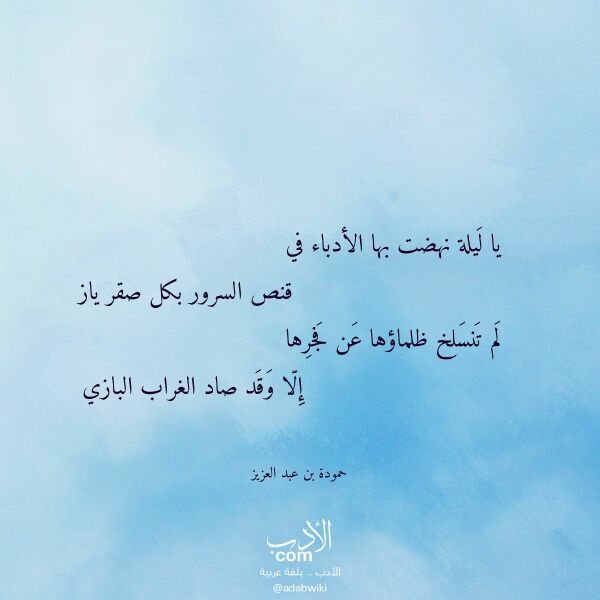 يا لَيلة نهضت بها الأدباء في
قنص السرور بكل صقر ياز
لَم تَنسَلخ ظلماؤها عَن فَجرِها
إِلّا وَقَد صاد الغراب البازي
حمودة بن عبد العزيز
الأدب
com
الأدب .. بلغة عربية
@adabwiki